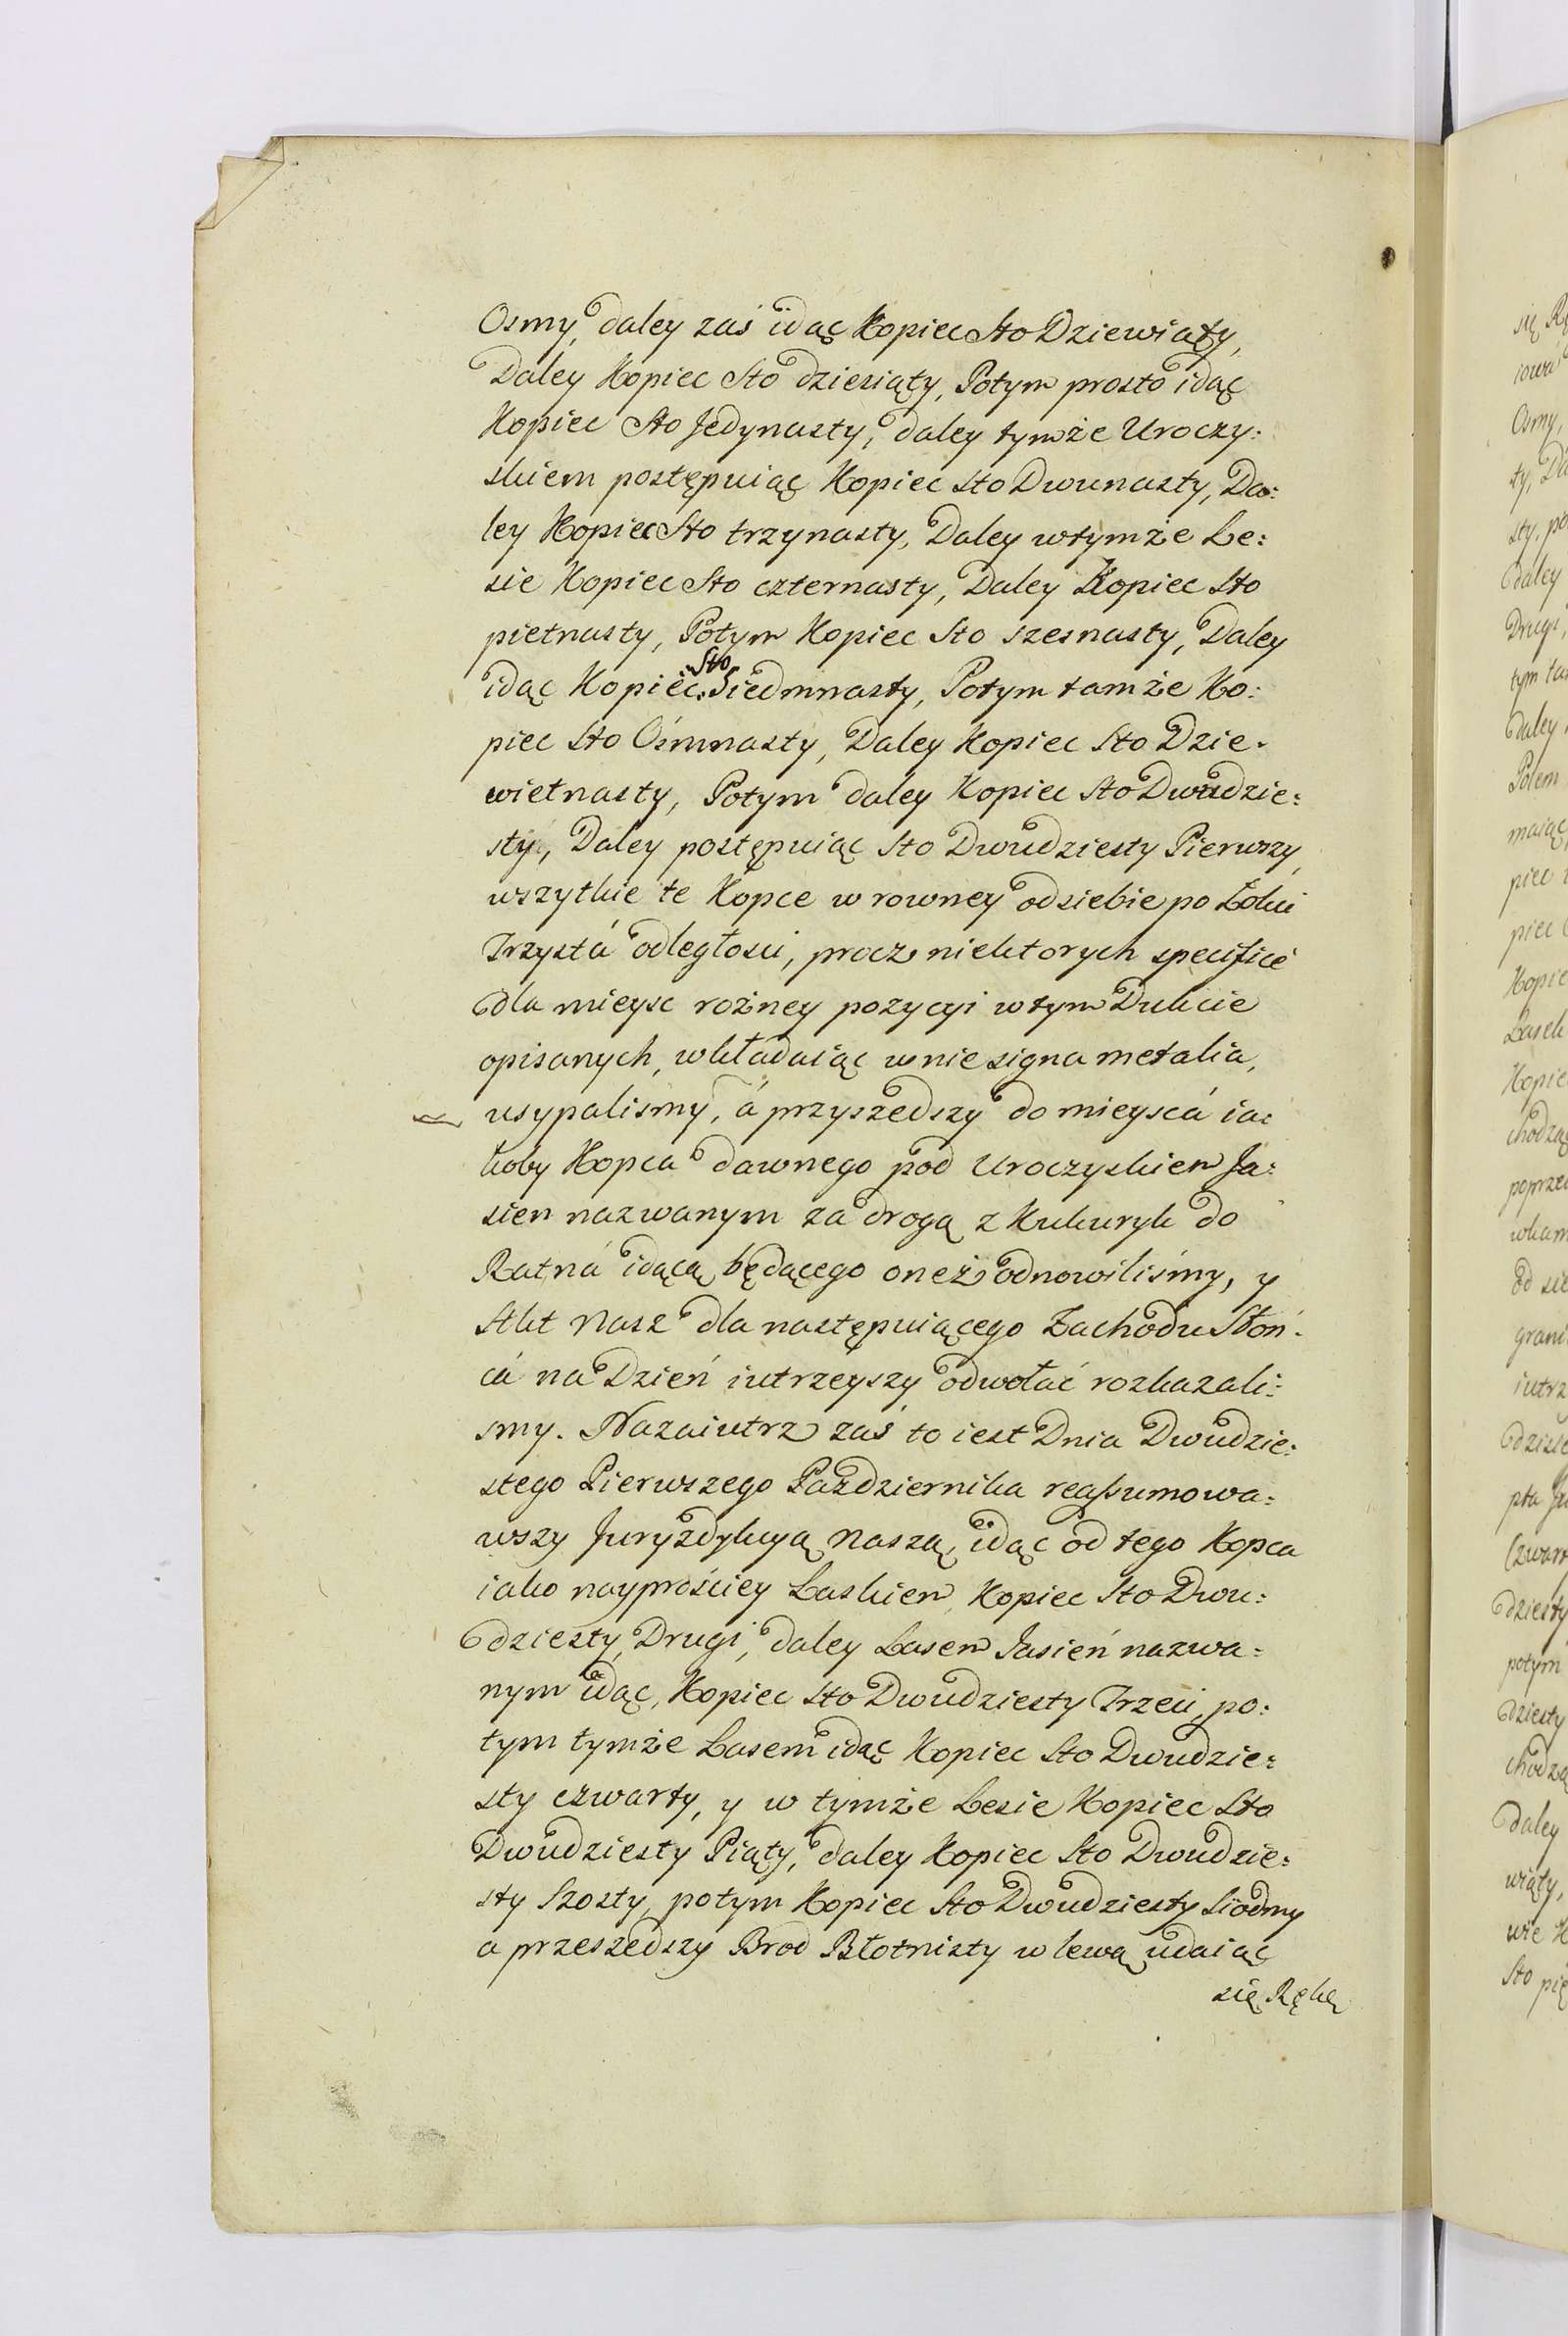 Osmy, daley zaś idąc Kopiec Sto Dziewiąty,
Daley Kopiec Sto dziesiąty, Potym prosto idąc
Kopiec Sto Jedynasty, daley tymże Uroczy:
skiem postępuiąc Kopiec sto Dwunasty, Da:
ley Kopiec Sto trzynasty, Daley wtymże Le:
sie Kopiec Sto czternasty, Daley Kopiec Sto
pietnasty, Potym Kopiec Sto szesnasty, Daley
idąc Kopiec Sto Siedmnasty, Potym tamże Ko:
piec Sto Ośmnasty, Daley Kopiec Sto Dzie:
wietnasty, Potym daley Kopiec Sto Dwudzie:
sty, Daley postępuiąc Sto Dwudziesty Pierwszy,
wszytkie te Kopce w rowney od siebie po Łokci
Trzystá odległosci, procz niektorych specifice
dla mieysc rożney pozycyi wtym Dukcie
opisanych, wkładaiąc w nie signa metalia,
usypalismy, á przyszedszy do mieyscá ia:
koby Kopca dawnego pod Uroczyskiem Ja:
sien nazwanym za drogą z Kukuryk do
Ratná idącą będącego oneż odnowiliśmy, y
Akt Nasz dla następuiącego Zachodu Słoń:
cá na Dzień iutrzeyszy odwołać rozkazali:
smy. Nazaiutrz zaś to iest Dnia Dwudzie:
stego Pierwszego Pazdziernika reassumowa:
wszy Juryzdykcyą naszą, idąc od tego Kopca
iako nayprościey Laskiem Kopiec Sto Dwu:
dziesty Drugi, daley Lasem Jasień nazwa:
nym idąc, Kopiec sto Dwudziesty Trzeci, po:
tym tymże Lasem idąc Kopiec Sto Dwudzie:
sty czwarty, y w tymże Lesie Kopiec Sto
Dwudziesty Piąty, daley Kopiec Sto Dwudzie:
sty Szosty, potym Kopiec Sto Dwudziesty Siodmy
a przeszedszy Brod Błotnisty w lewą udaiąc
się Rękę